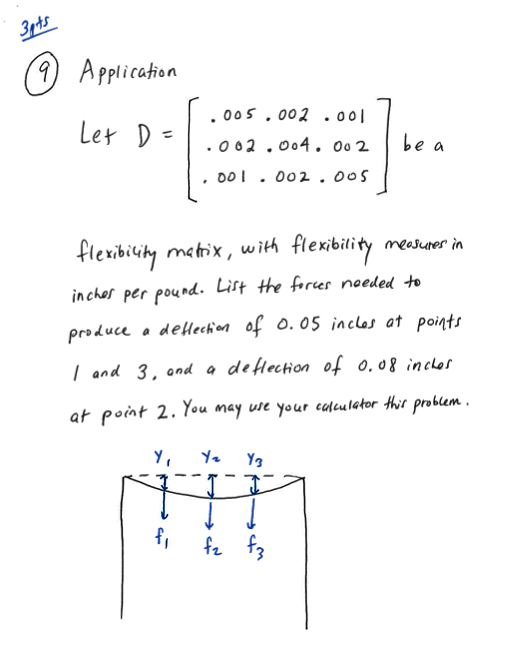 3pts
9 Application
Let D = [ .005 .002 .001
.002 .004 .002
.001 .002 .005 ] be a
flexibility matrix, with flexibility measures in
inches per pound. List the forces needed to
produce a deflection of 0.05 inches at points
1 and 3, and a deflection of 0.08 inches
at point 2. You may use your calculator this problem.
y₁ y₂ y₃
f₁ f₂ f₃